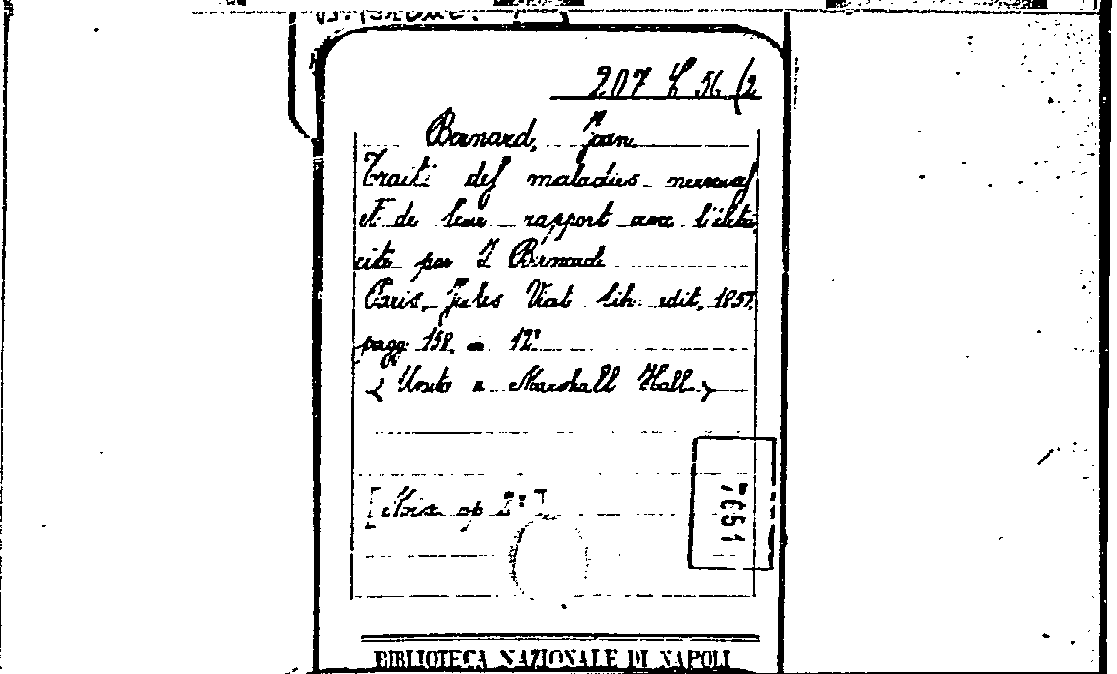 207 C 56 (2
Bernard, Jean
Traité des maladies nerveus
et de leur rapport avec l'élètri
cité par I Bernard
Paris, Jules Viat lib. edit, 1857
pagg 158. in 12°
< Unito a Marshall Hall >
[Misc op 2°]
7051
BIBLIOTECA NAZIONALE DI NAPOLI